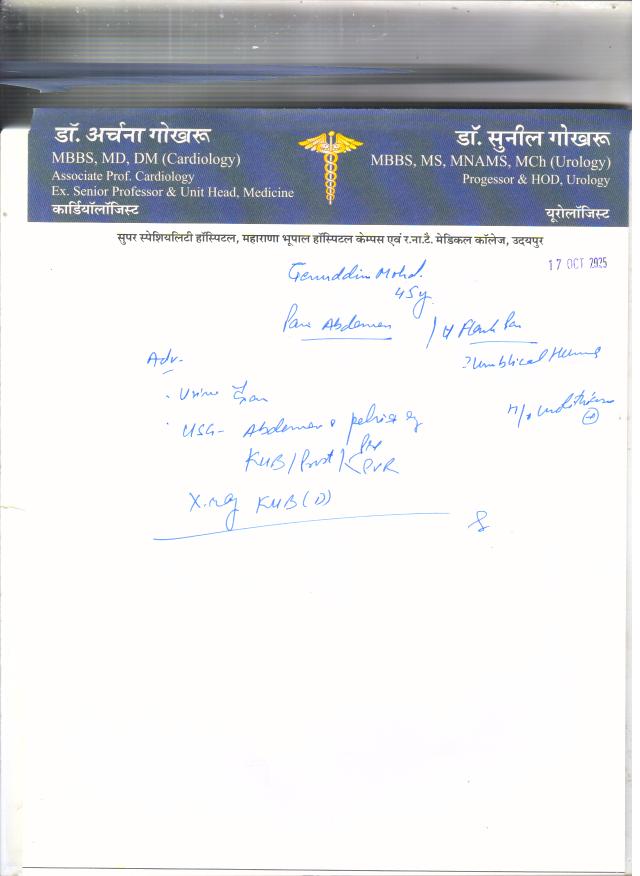 डॉ. अर्चना गोखरू
MBBS, MD, DM (Cardiology)
Associate Prof. Cardiology
Ex. Senior Professor & Unit Head, Medicine
कार्डियॉलॉजिस्ट
डॉ. सुनील गोखरू
MBBS, MS, MNAMS, MCh (Urology)
Progessor & HOD, Urology
यूरोलॉजिस्ट
सुपर स्पेशियलिटी हॉस्पिटल, महाराणा भूपाल हॉस्पिटल केम्पस एवं र.ना.टै. मेडिकल कॉलेज, उदयपुर
17 OCT 2025
Mohd.
45y
Pain Abdomen / Flank Pain
? Umblical Hernia
Adv.
Urine
USG- Abdomen & pelvis
KUB/Prost/ PVR
X.ray KUB (D)